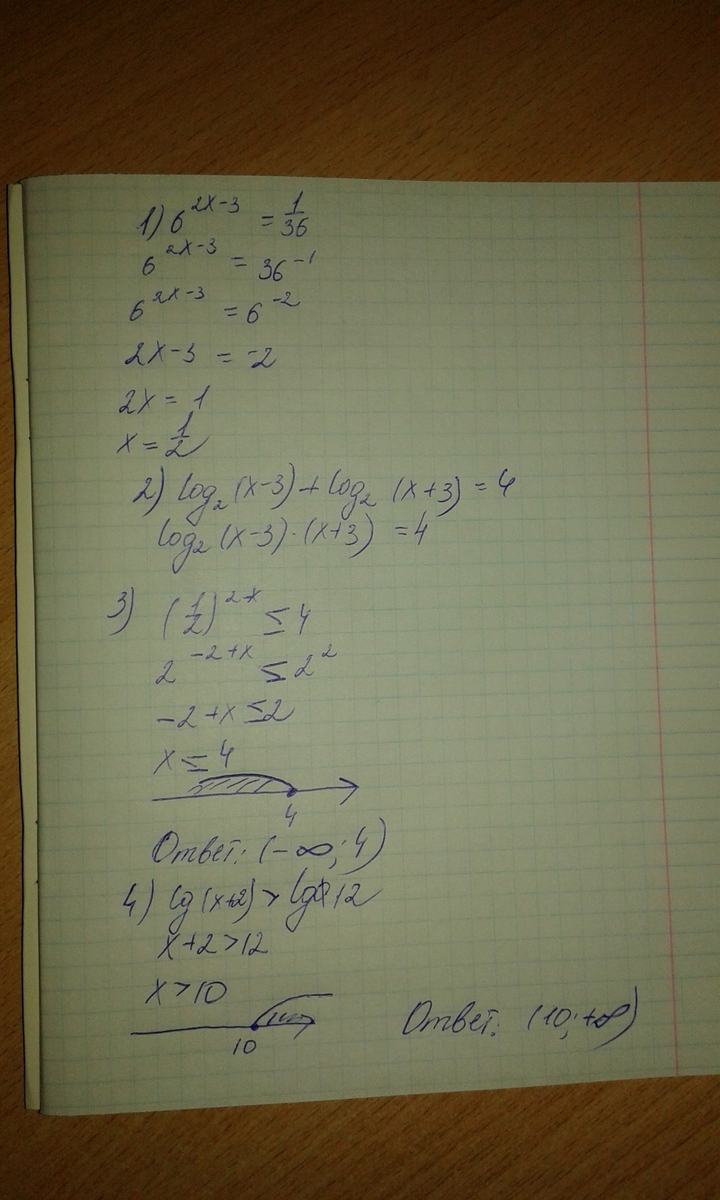 1) 6^(2x-3) = 1/36
6^(2x-3) = 36^(-1)
6^(2x-3) = 6^(-2)
2x-3 = -2
2x = 1
x = 1/2
2) log₂ (x-3) + log₂ (x+3) = 4
log₂ (x-3)·(x+3) = 4
3) (1/2)^(2-x) ≤ 4
2^(-2+x) ≤ 2^2
-2+x ≤ 2
x ≤ 4
4
Ответ: (-∞; 4)
4) lg(x+2) > lg 12
x+2 > 12
x > 10
10
Ответ: (10; +∞)